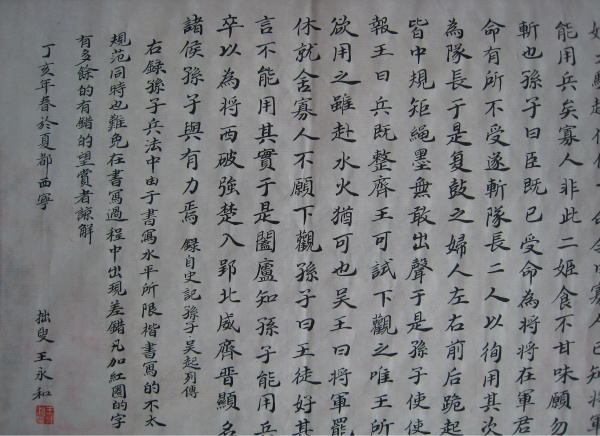 令曰寡人已知將軍
能用兵矣寡人非此二姬食不甘味願勿
斬也孫子曰臣既已受命為將將在軍君
命有所不受遂斬隊長二人以徇用其次
為隊長于是复鼓之婦人左右前后跪起
皆中規矩繩墨無敢出聲于是孫子使使
報王曰兵既整齊王可試下觀之唯王所
欲用之雖赴水火猶可也吴王曰將軍罷
休就舍寡人不願下觀孫子曰王徒好其
言不能用其實于是闔廬知孫子能用兵
卒以為將西破強楚入郢北威齊晉顯名
諸侯孫子與有力焉 錄自史記孫子吴起列傳
右録孫子兵法中由于書寫水平所限楷書寫的不太
規范同時也難免在書寫過程中出現差錯凡加紅圈的字
有多餘的有錯的望賞者諒解
丁亥年春於夏都西寧
拙叟王永和